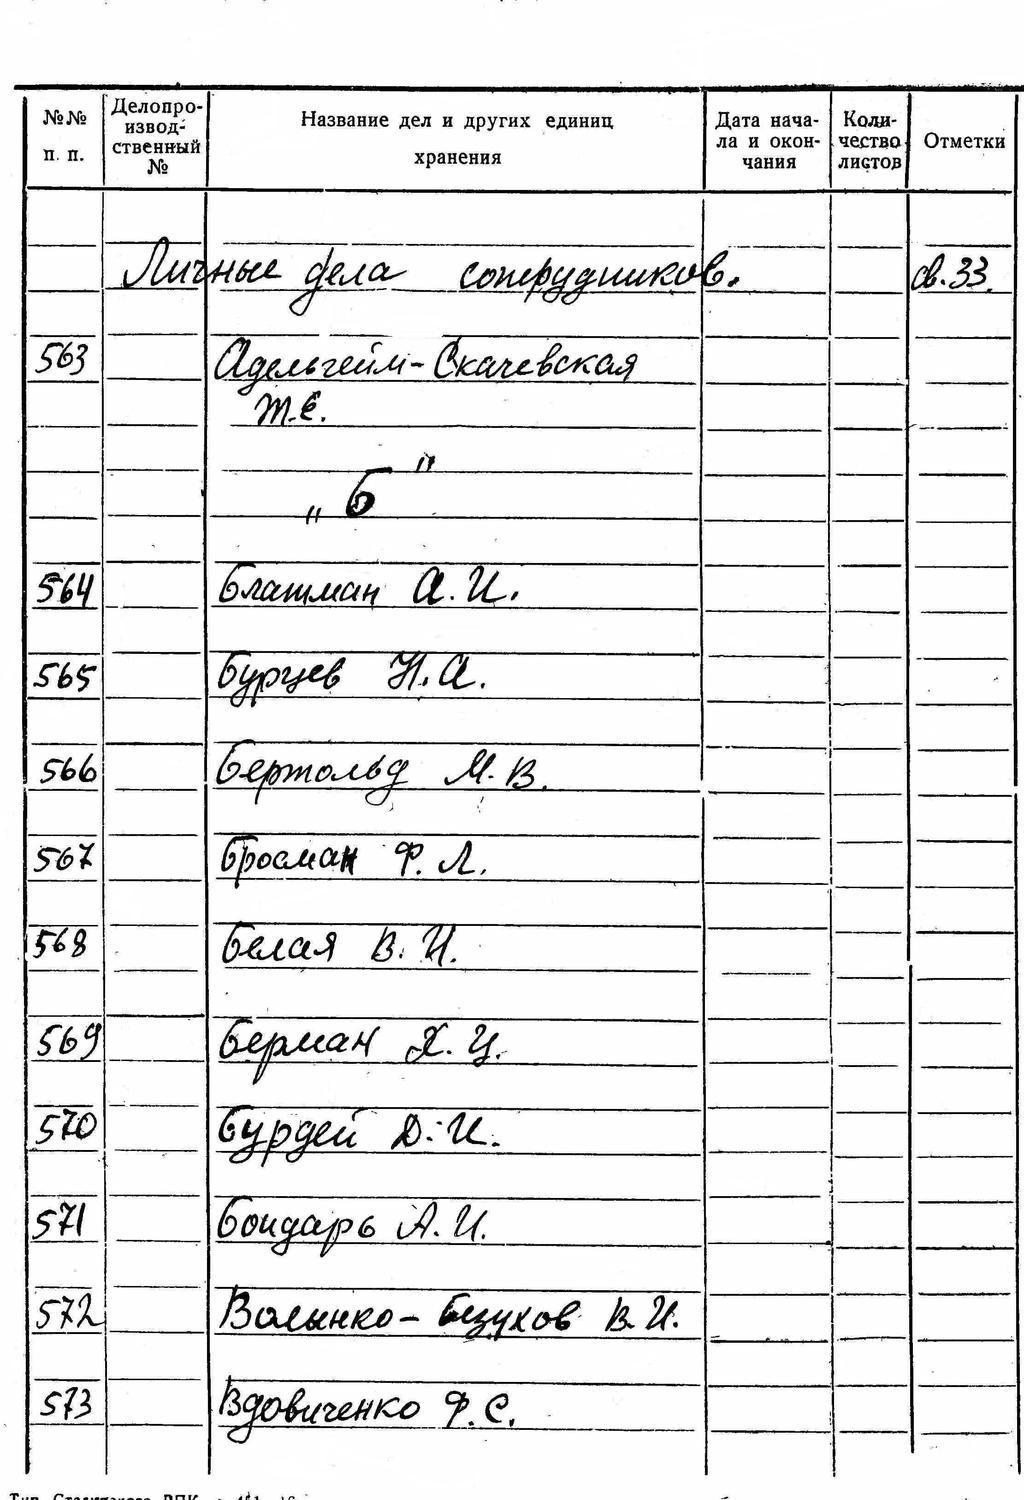 №№ п. п.
Делопро-
извод-
ственный
№
Название дел и других единиц
хранения
Дата нача-
ла и окон-
чания
Коли-
чество
листов
Отметки
Личные дела сотрудников. св. 33.
563 Адельгейм-Скачевская
Т.Е.
„Б"
564 Блатман А.И.
565 Бурцев Н.А.
566 Бертольд М.В.
567 Бросман Ф.Л.
568 Белая В.И.
569 Берман Х.Ц.
570 Бурдей Д.И.
571 Бондарь А.И.
572 Волынко-Безухов В.И.
573 Вдовиченко Ф.С.